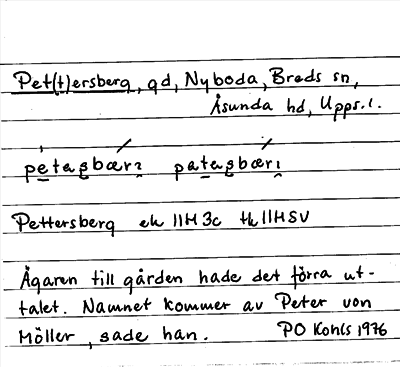 Pet(t)ersberg, gd, Nyboda, Breds sn,
Åsunda hd, Upps.l.
petagbærɪ patagbærɪ
Pettersberg ek 11H3c tk11HSV
Ägaren till gården hade det förra ut-
talet. Namnet kommer av Peter von
Möller, sade han. PO Kohls 1976